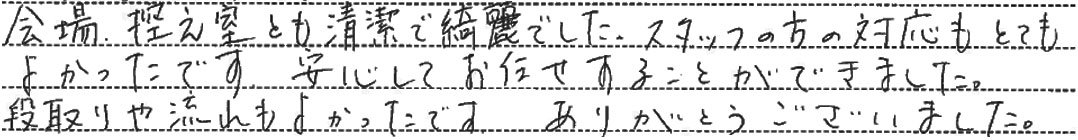 会場.控え室とも清潔で綺麗でした。スタッフの方の対応もとても
よかったです。安心してお任せすることができました。
段取りや流れもよかったです。ありがとうございました。